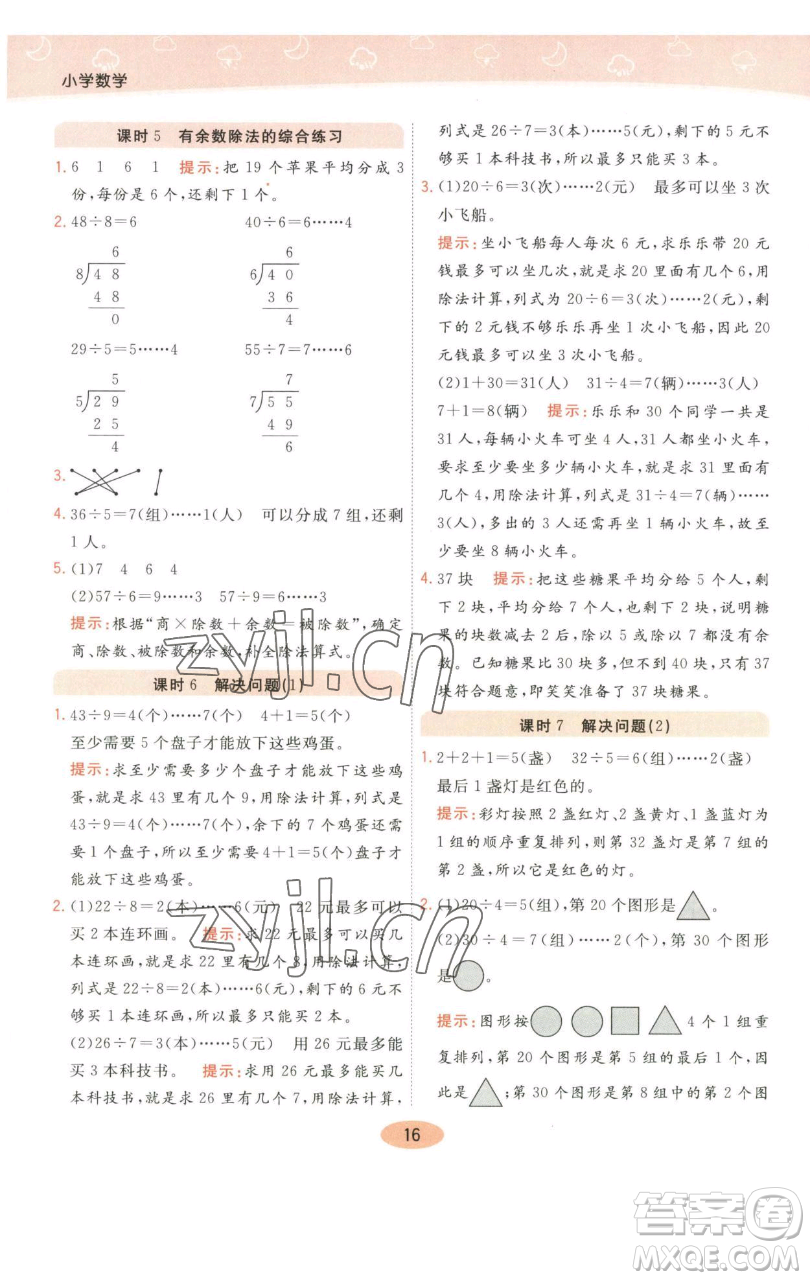 小学数学
课时 5　有余数除法的综合练习
1. 6　1　6　1　提示:把 19 个苹果平均分成 3
份,每份是 6 个,还剩下 1 个。
2. 48÷8=6　40÷6=6……4
6　6
8 4 8　6 4 0
4 8　3 6
0　4
29÷5=5……4　55÷7=7……6
5　7
5 2 9　7 5 5
2 5　4 9
4　6
3.
4. 36÷5=7(组)……1(人)　可以分成 7 组,还剩
1 人。
5. (1)7　4　6　4
(2)57÷6=9……3　57÷9=6……3
提示:根据“商×除数+余数=被除数”,确定
商、除数、被除数和余数,补全除法算式。
课时 6　解决问题(1)
1. 43÷9=4(个)……7(个)　4+1=5(个)
至少需要 5 个盘子才能放下这些鸡蛋。
提示:求至少需要多少个盘子才能放下这些鸡
蛋,就是求 43 里面有几个 9,用除法计算,列式是
43÷9=4(个)……7(个),余下的 7 个鸡蛋还需
要 1 个盘子,所以至少需要 4+1=5(个)盘子才
能放下这些鸡蛋。
2. (1)22÷8=2(本)……6(元)　22 元最多可以
买 2 本连环画。　提示:求 22 元最多可以买几
本连环画,就是求 22 里面有几个 8,用除法计算,
列式是 22÷8=2(本)……6(元),剩下的 6 元不
够买 1 本连环画,所以最多只能买 2 本。
(2)26÷7=3(本)……5(元)　用 26 元最多能
买 3 本科技书。　提示:求用 26 元最多能买几
本科技书,就是求 26 里面有几个 7,用除法计算,
列式是 26÷7=3(本)……5(元),剩下的 5 元不
够买 1 本科技书,所以最多只能买 3 本。
3. (1)20÷6=3(次)……2(元)　最多可以坐 3 次
小飞船。
提示:坐小飞船每人每次 6 元,求乐乐带 20 元
最多可以坐几次,就是求 20 里面有几个 6,用
除法计算,列式为 20÷6=3(次)……2(元),剩
下的 2 元钱不够乐乐再坐 1 次小飞船,因此 20
元钱最多可以坐 3 次小飞船。
(2)1+30=31(人)　31÷4=7(辆)……3(人)
7+1=8(辆)　提示:乐乐和 30 个同学一共是
31 人,每辆小火车可坐 4 人,31 人都坐小火车,
要求至少要坐多少辆小火车,就是求 31 里面有
几个 4,用除法计算,列式为 31÷4=7(辆)……
3(人),多出的 3 人还需再坐 1 辆小火车,故至
少要坐 8 辆小火车。
4. 37 块　提示:把这些糖果平均分给 5 个人,剩
下 2 块,平均分给 7 个人,也剩下 2 块,说明糖
果的块数减去 2 后,除以 5、除以 7 都没有余
数。已知糖果比 30 块多,但不到 40 块,只有 37
块符合题意,即笑笑准备了 37 块糖果。
课时 7　解决问题(2)
1. 2+2+1=5(盏)　32÷5=6(组)……2(盏)
最后 1 盏灯是红色的。
提示:彩灯按照 2 盏红灯、2 盏黄灯、1 盏蓝灯为
1 组的顺序重复排列,则第 32 盏灯是第 7 组的
第 2 盏,所以它是红色的灯。
2. (1)20÷4=5(组),第 20 个图形是 。
(2)30÷4=7(组)……2(个),第 30 个图形
是 。
提示:图形按 4 个 1 组重
复排列,第 20 个图形是第 5 组的最后一个,因
此是 ;第 30 个图形是第 8 组中的第 2 个图
16
zyjl.cn
zyjl.cn
答案卷
MXQE.COM